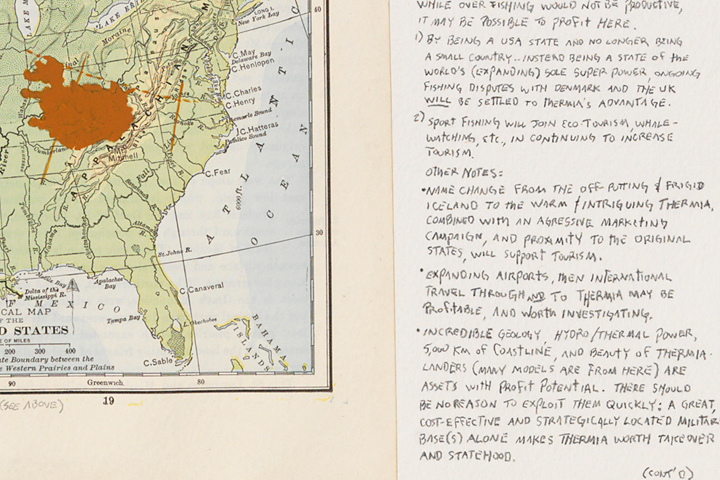 LAKE ERIE
LONG I.
New York bay
40
Moraine
C.May
Delaware Bay
C. Henlopen
C.Charles
C. Henry
Albemarle Sound
C. Hatteras
Pamlico Sound
Cumberland
Mt.
Mitchell
APPALACHIAN M
C. Fear
6000 ft.
ATLANTIC
OCEAN
30
St. Johns R.
Mobile Bay
Apalachee
Bay
Delta of the
Mississippi R.
C. Canaveral
F MEXICO
CAL MAP
OF THE
D STATES
E OF MILES
200 300 400
Tampa Bay
L. Okeechobee
BAHAMA
ISLANDS
C. Sable
ate Boundary between the
e Western Prairies and Plains
90 Greenwich. 80
(SEE ABOVE) 19
WHILE OVER FISHING WOULD NOT BE PRODUCTIVE,
IT MAY BE POSSIBLE TO PROFIT HERE.
1) BY BEING A USA STATE AND NO LONGER BEING
A SMALL COUNTRY... INSTEAD BEING A STATE OF THE
WORLD'S (EXPANDING) SOLE SUPER POWER, ONGOING
FISHING DISPUTES WITH DENMARK AND THE UK
WILL BE SETTLED TO THERMIA'S ADVANTAGE.
2) SPORT FISHING WILL JOIN ECO TOURISM, WHALE-
WATCHING, ETC., IN CONTINUING TO INCREASE
TOURISM.
OTHER NOTES:
• NAME CHANGE FROM THE OFF-PUTTING & FRIGID
ICELAND TO THE WARM & INTRIGUING THERMIA,
COMBINED WITH AN AGRESSIVE MARKETING
CAMPAIGN, AND PROXIMITY TO THE ORIGINAL
STATES, WILL SUPPORT TOURISM.
• EXPANDING AIRPORTS, THEN INTERNATIONAL
TRAVEL THROUGH AND TO THERMIA MAY BE
PROFITABLE, AND WORTH INVESTIGATING.
• INCREDIBLE GEOLOGY, HYDRO/THERMAL POWER,
5,000 KM OF COASTLINE, AND BEAUTY OF THERMIA-
LANDERS (MANY MODELS ARE FROM HERE) ARE
ASSETS WITH PROFIT POTENTIAL. THERE SHOULD
BE NO REASON TO EXPLOIT THEM QUICKLY: A GREAT,
COST-EFFECTIVE AND STRATEGICALLY LOCATED MILITAR
BASE(S) ALONE MAKES THERMIA WORTH TAKEOVER
AND STATEHOOD.
(CONT'D)